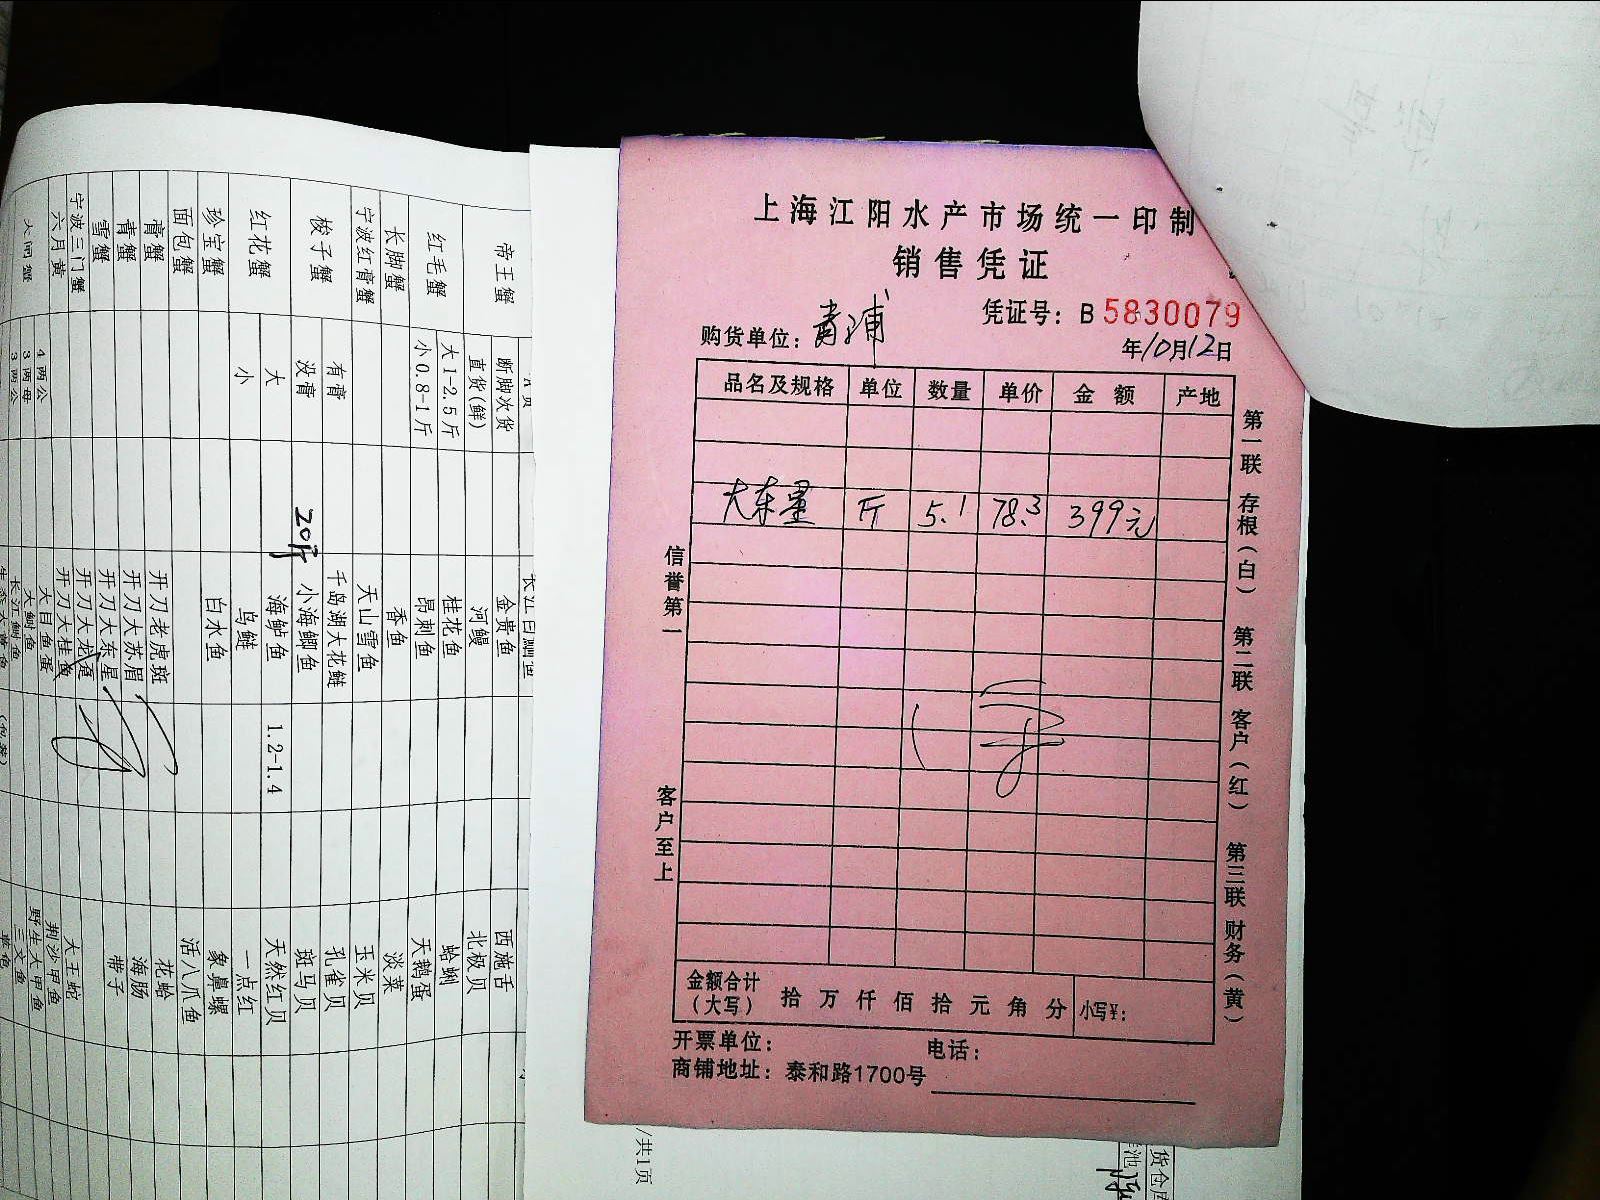 上海江阳水产市场统一印制
销售凭证
凭证号：B 5830079
购货单位：青浦
年10月12日
品名及规格 单位 数量 单价 金额 产地
大东星 斤 5.1 78.3 399元
金额合计（大写） 拾 万 仟 佰 拾 元 角 分 小写¥：
开票单位： 电话：
商铺地址：泰和路1700号
信誉第一
客户至上
第一联 存根（白） 第二联 客户（红） 第三联 财务（黄）
帝王蟹 断脚次货 金贵鱼 西施舌
直货(鲜) 河鳗 北极贝
红毛蟹 大1-2.5斤 桂花鱼 蛤蜊
小0.8-1斤 昂刺鱼 天鹅蛋
长脚蟹 香鱼 淡菜
宁波红膏蟹 天山雪鱼 玉米贝
梭子蟹 有膏 千岛湖大花鲢 孔雀贝
没膏 20斤 小海鲫鱼 斑马贝
红花蟹 大 海鲈鱼 1.2-1.4 天然红贝
小 鸟鲢 一点红
珍宝蟹 白水鱼 象鼻螺
面包蟹 活八爪鱼
膏蟹 开刀老虎斑 花蛤
青蟹 开刀大苏眉 海肠
雪蟹 开刀大东星 带子
宁波三门蟹 开刀大龙趸
六月黄 开刀大桂鱼 大王蛇
大闸蟹 4两公 大目鱼蛋 荆沙甲鱼
3两母 大鲥鱼 野生大甲鱼
3两公 长江鲥鱼 三文鱼
/共1页